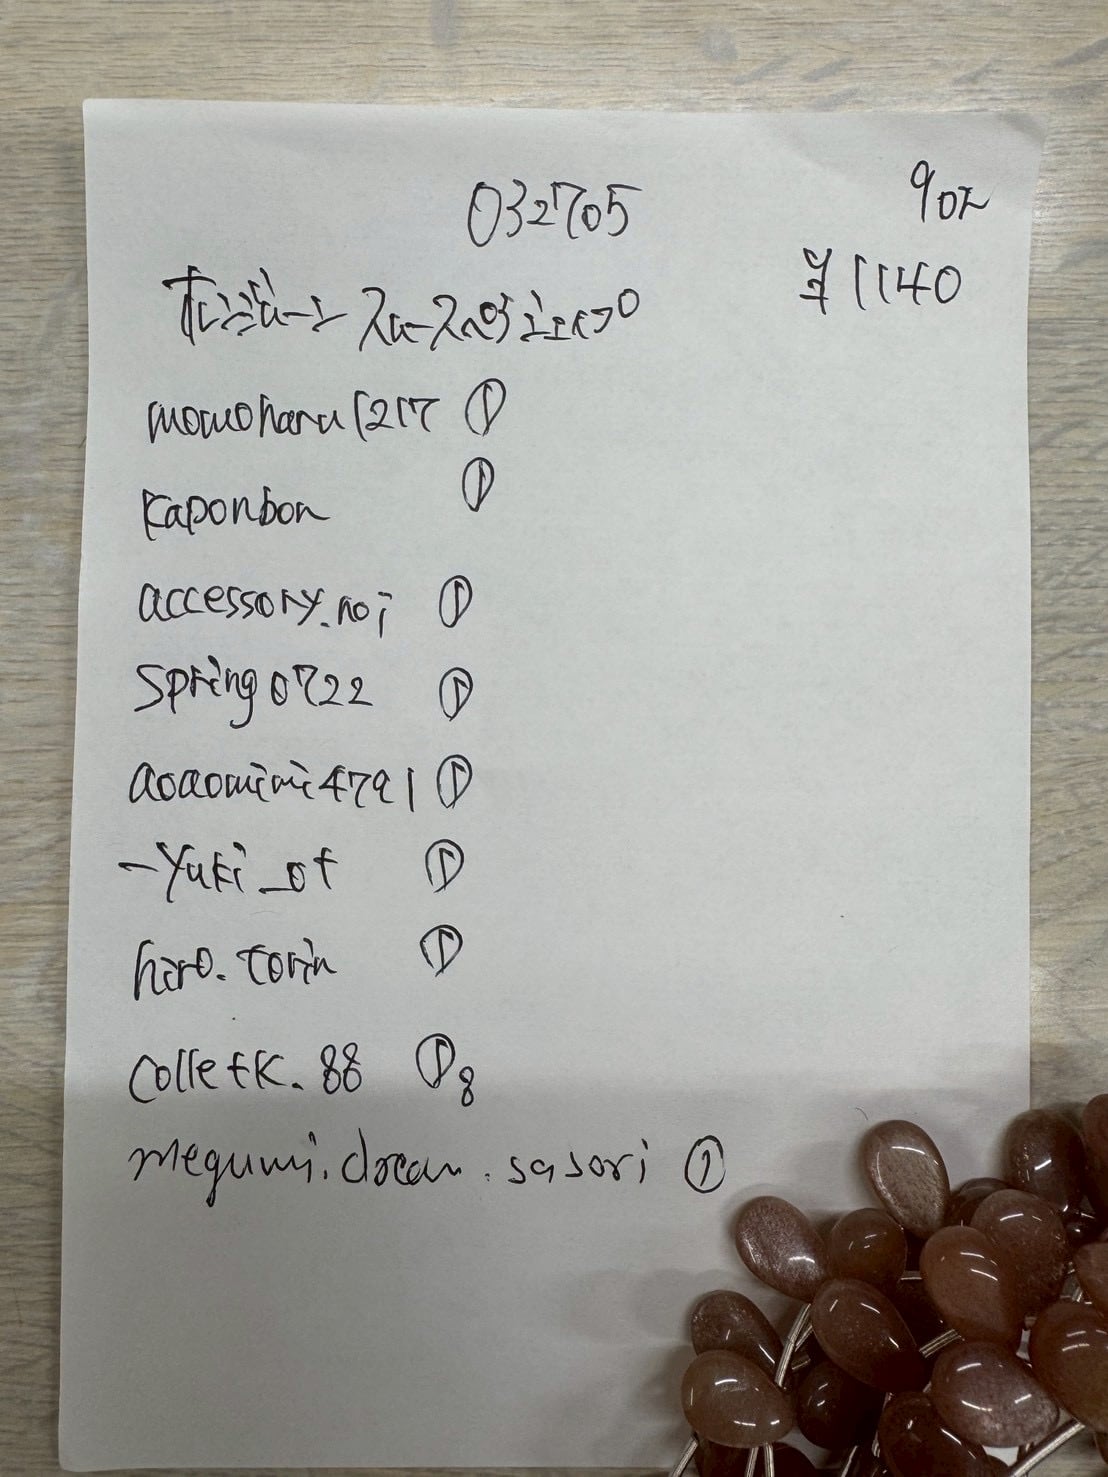 032705
9コマ
¥1140
momoharu1217 ①
kaponbon ①
accessory.noi ①
spring0722 ①
aoaomimi4791 ①
-yuki_ot ①
hiro.torin ①
colletk.88 ① 8
megumi.dream.sasori ①